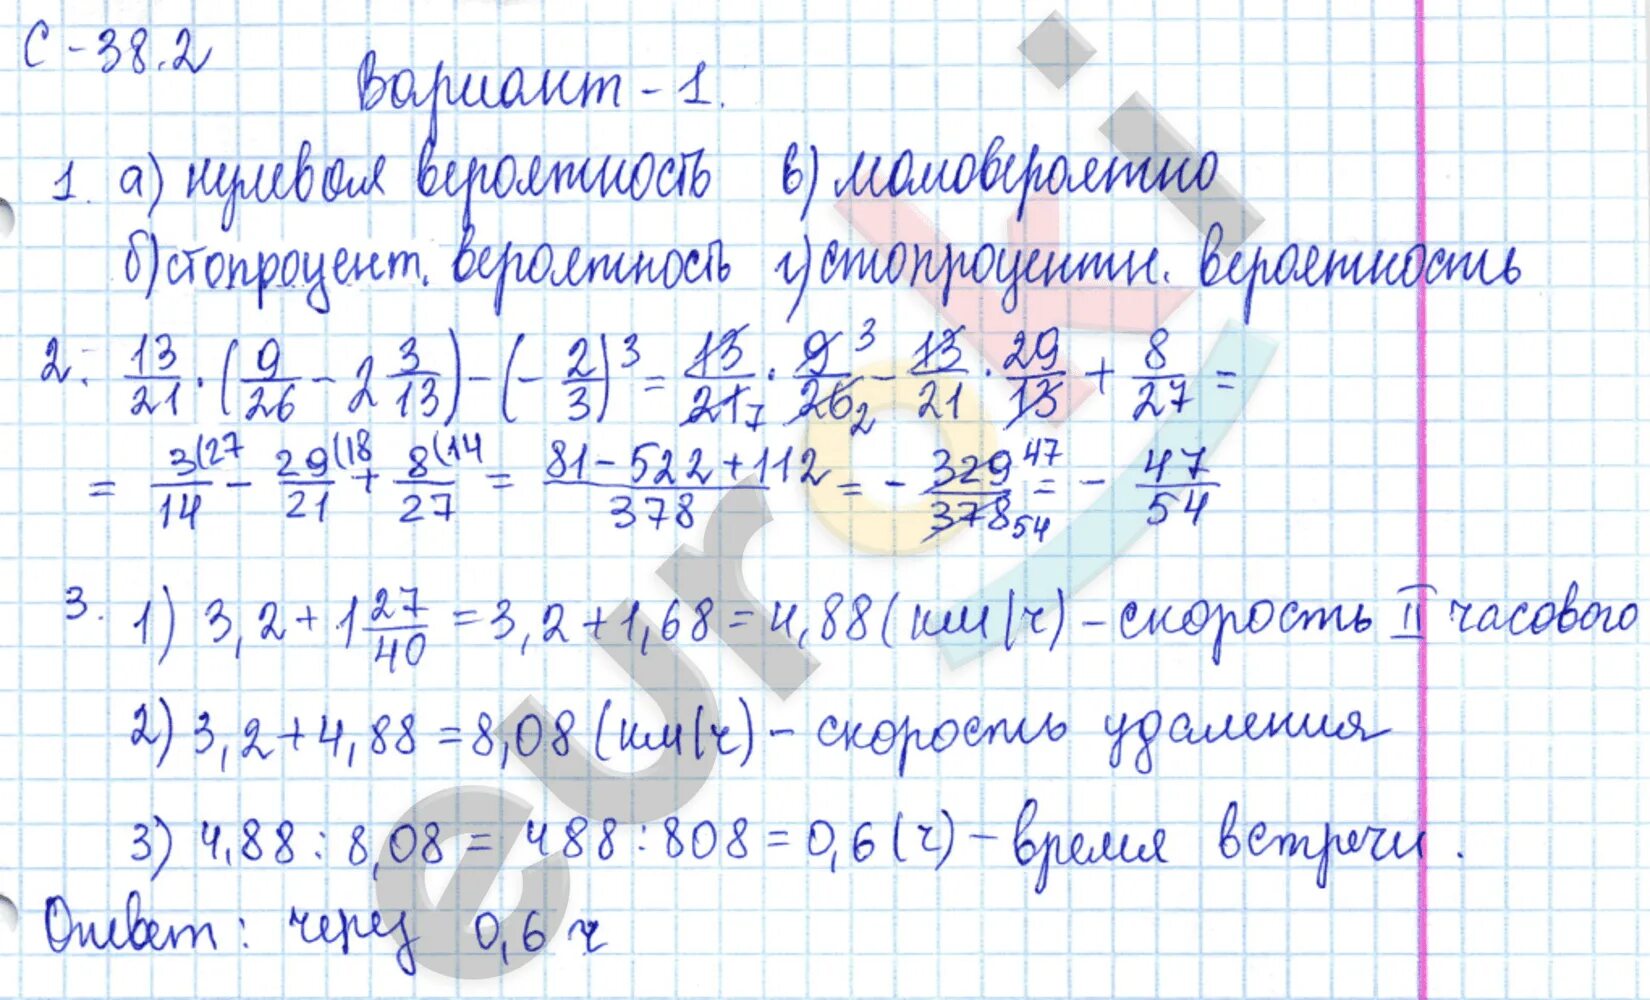 С-38.2
Вариант-1.
1. а) нулевая вероятность в) маловероятно
б) стопроцент. вероятность г) стопроцентн. вероятность
2. 13/21 · (9/26 - 2 3/13) - (-2/3)^3 = 13/21 7 · 9 3/26 2 - 13/21 · 29/13 + 8/27 =
= 3(27/14 - 29(18/21 + 8(14/27 = 81-522+112/378 = - 329 47/378 54 = - 47/54
3. 1) 3,2 + 1 27/40 = 3,2 + 1,68 = 4,88 (км/ч) - скорость II часового
2) 3,2 + 4,88 = 8,08 (км/ч) - скорость удаления
3) 4,88 : 8,08 = 488 : 808 = 0,6 (ч) - время встречи.
Ответ: через 0,6 ч
euroki